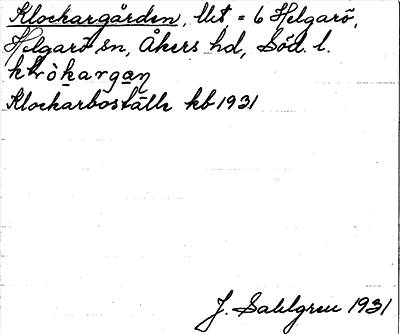 Klockargården, lht = 6 Helgarö,
Helgarö sn, Åkers hd, Söd. l.
Klockarboställe kb 1931
J. Sahlgren 1931